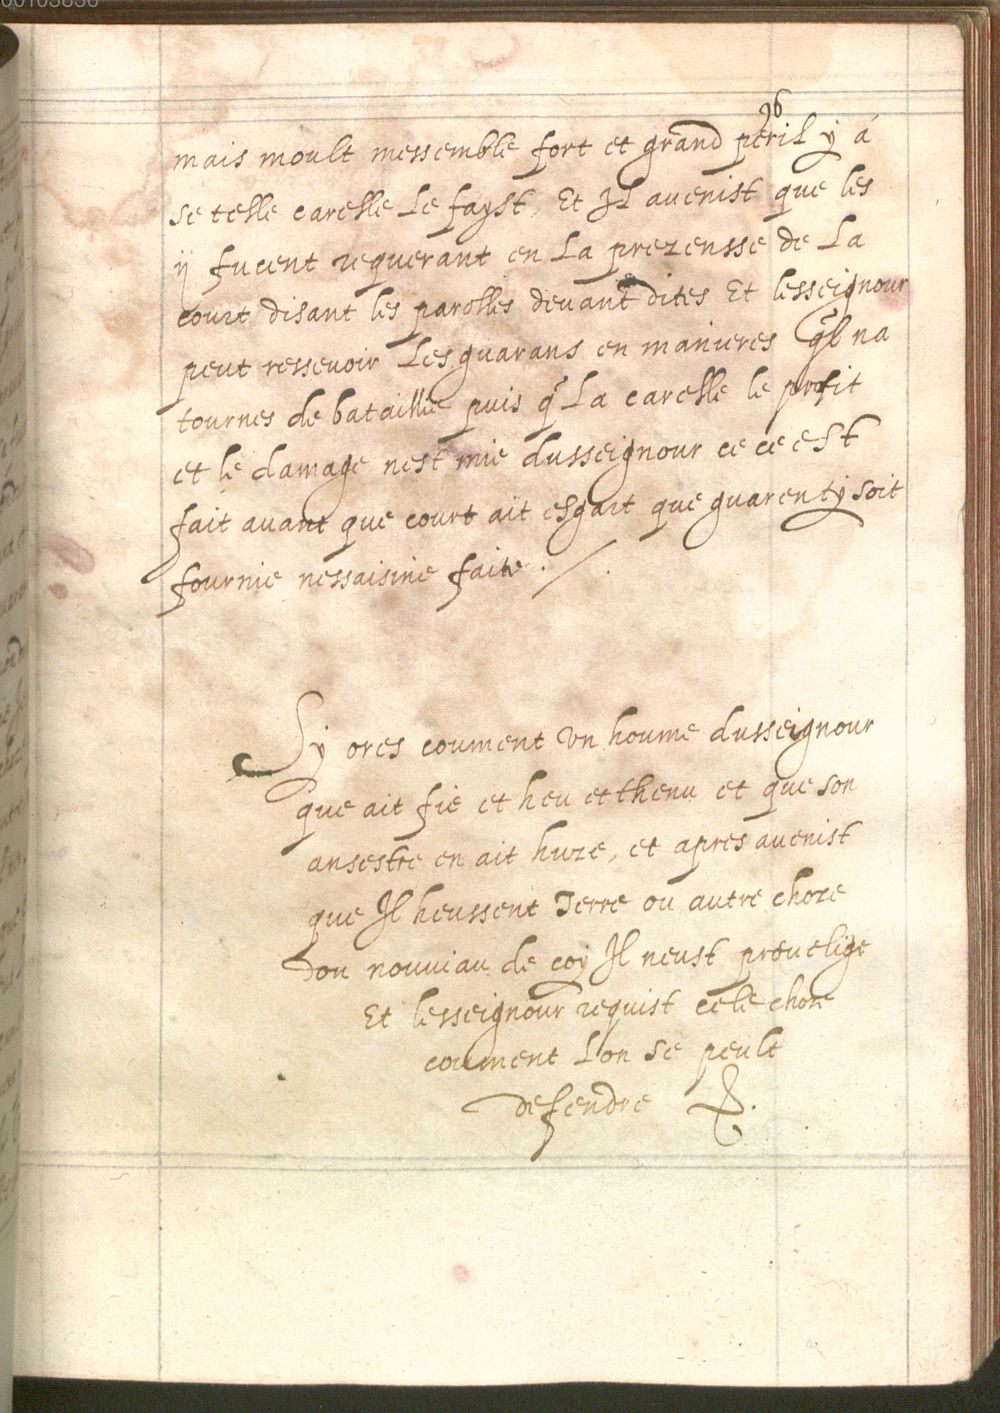 00103836
96
mais moult messemble fort et grand peril ÿ á
se telle carelle Le fayst, Et Jl avenist que les
ÿ fucent requerant en La prezensse de La
court disant les parolles devant dites Et lesseignour
peut ressevoir Les guarans en manieres ql na
tournes de bataillie puis q La carelle le profit
et le damage nest mie dusseignour ce ce est
fait avant que court ait esgart que guarentÿ soit
fournie nessaisine faite ./.
Sÿ ores coument vn houme dusseignour
que ait fie et heu et thenu et que son
ansestre en ait huze, et apres avenist
que Jl heussent Terre ou autre choze
dou nouviau de coÿ Jl neust prevelige
Et lesseignour requist cele choze
coument Lon se peult
defendre